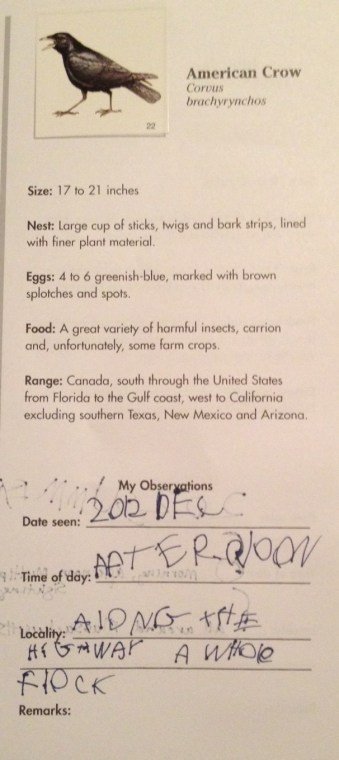 22
American Crow
Corvus
brachyrynchos
Size: 17 to 21 inches
Nest: Large cup of sticks, twigs and bark strips, lined
with finer plant material.
Eggs: 4 to 6 greenish-blue, marked with brown
splotches and spots.
Food: A great variety of harmful insects, carrion
and, unfortunately, some farm crops.
Range: Canada, south through the United States
from Florida to the Gulf coast, west to California
excluding southern Texas, New Mexico and Arizona.
My Observations
Date seen: 2012 DEC
Time of day: AFTERNOON
Locality: ALONG tHE
HIGHWAY A WHOLE
FLOCK
Remarks: